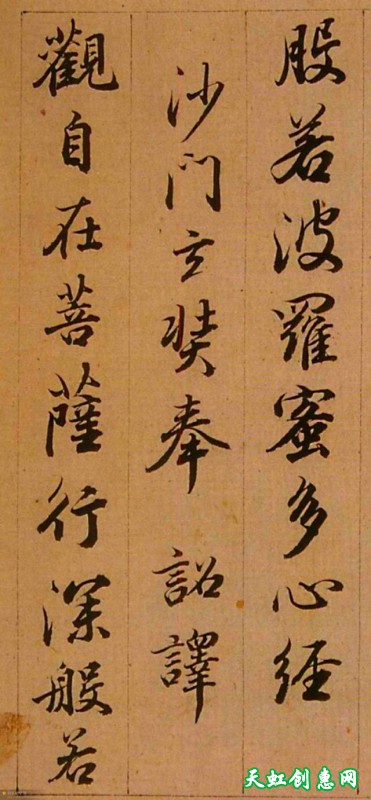 般若波羅蜜多心經
沙門玄奘奉 詔譯
觀自在菩薩行深般若
天虹创惠网